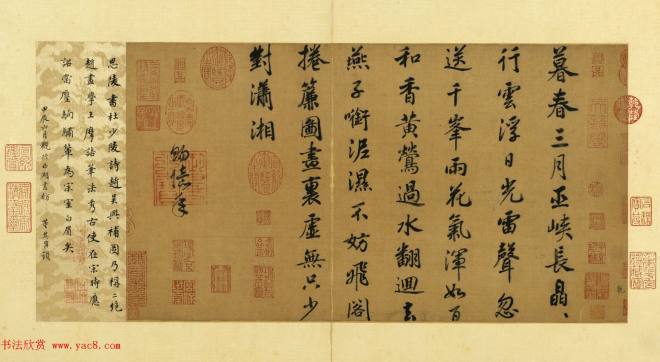 暮春三月巫峽長晶〻
行雲浮日光雷聲忽
送千峯雨花氣渾如百
和香黃鶯過水翻迴去
燕子銜泥濕不妨飛閣
捲簾圖畫裏虛無只少
對瀟湘
賜億年
思陵書杜少陵詩趙吳興補圖乃稱二絕
趙畫學王摩詰筆法秀古使在宋時應
詔當壓駒驌輩為宗室白眉矣
甲辰六月觀於西湖畫舫 董其昌題
书法欣赏
www.yac8.com